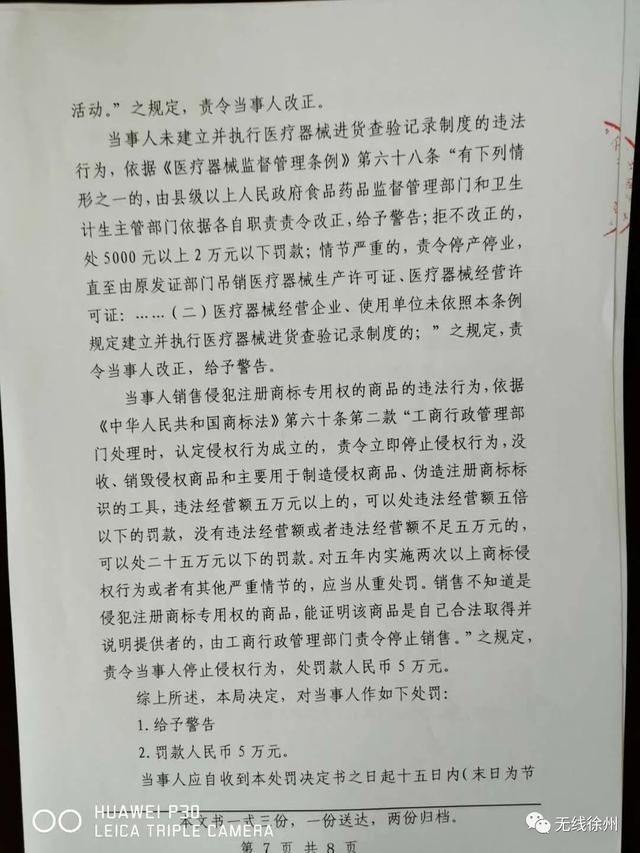 活动。”之规定，责令当事人改正。
当事人未建立并执行医疗器械进货查验记录制度的违法
行为，依据《医疗器械监督管理条例》第六十八条“有下列情
形之一的，由县级以上人民政府食品药品监督管理部门和卫生
计生主管部门依据各自职责责令改正，给予警告；拒不改正的，
处5000元以上2万元以下罚款；情节严重的，责令停产停业，
直至由原发证部门吊销医疗器械生产许可证、医疗器械经营许
可证：……（二）医疗器械经营企业、使用单位未依照本条例
规定建立并执行医疗器械进货查验记录制度的；”之规定，责
令当事人改正，给予警告。
当事人销售侵犯注册商标专用权的商品的违法行为，依据
《中华人民共和国商标法》第六十条第二款“工商行政管理部
门处理时，认定侵权行为成立的，责令立即停止侵权行为，没
收、销毁侵权商品和主要用于制造侵权商品、伪造注册商标标
识的工具，违法经营额五万元以上的，可以处违法经营额五倍
以下的罚款，没有违法经营额或者违法经营额不足五万元的，
可以处二十五万元以下的罚款。对五年内实施两次以上商标侵
权行为或者有其他严重情节的，应当从重处罚。销售不知道是
侵犯注册商标专用权的商品，能证明该商品是自己合法取得并
说明提供者的，由工商行政管理部门责令停止销售。”之规定，
责令当事人停止侵权行为，处罚款人民币5万元。
综上所述，本局决定，对当事人作如下处罚：
1.给予警告
2.罚款人民币5万元。
当事人应自收到本处罚决定书之日起十五日内(末日为节
本文书一式三份，一份送达，两份归档。
第7页共8页
HUAWEI P30
LEICA TRIPLE CAMERA
无线徐州